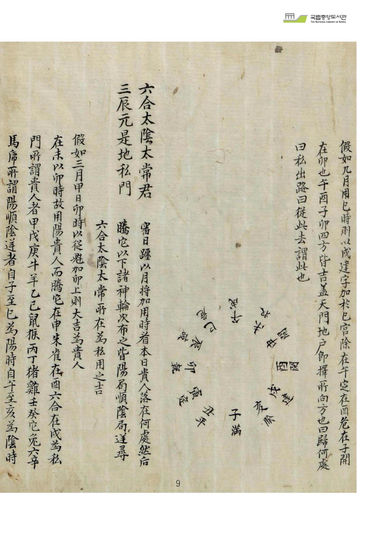 국립중앙도서관
假如九月用巳時則以戌建字加於巳宮除在午定在酉危在子開
在卯也午酉子卯四方皆吉盖天門地户即擇所向方也曰歸何處
曰私出路曰從此去謂此也
六合太陰太常君
三辰元是地私門
審日躔以月將加用時看本日貴人落在何處然后
騰它以下諸神輪次布之皆陽局順陰局逆尋
六合太陰太常所在爲私用之吉
假如三月甲日卯時以從魁加卯上則大吉爲貴人
在未以卯時故用陽貴人而騰它在申朱雀在酉六合在戌爲私
門所謂貴人者甲戊庚斗羊乙己鼠猴丙丁猪雞壬癸它兎六辛
馬虎所謂陽順陰逆者自子至巳爲陽時自午至亥爲陰時
子滿
9